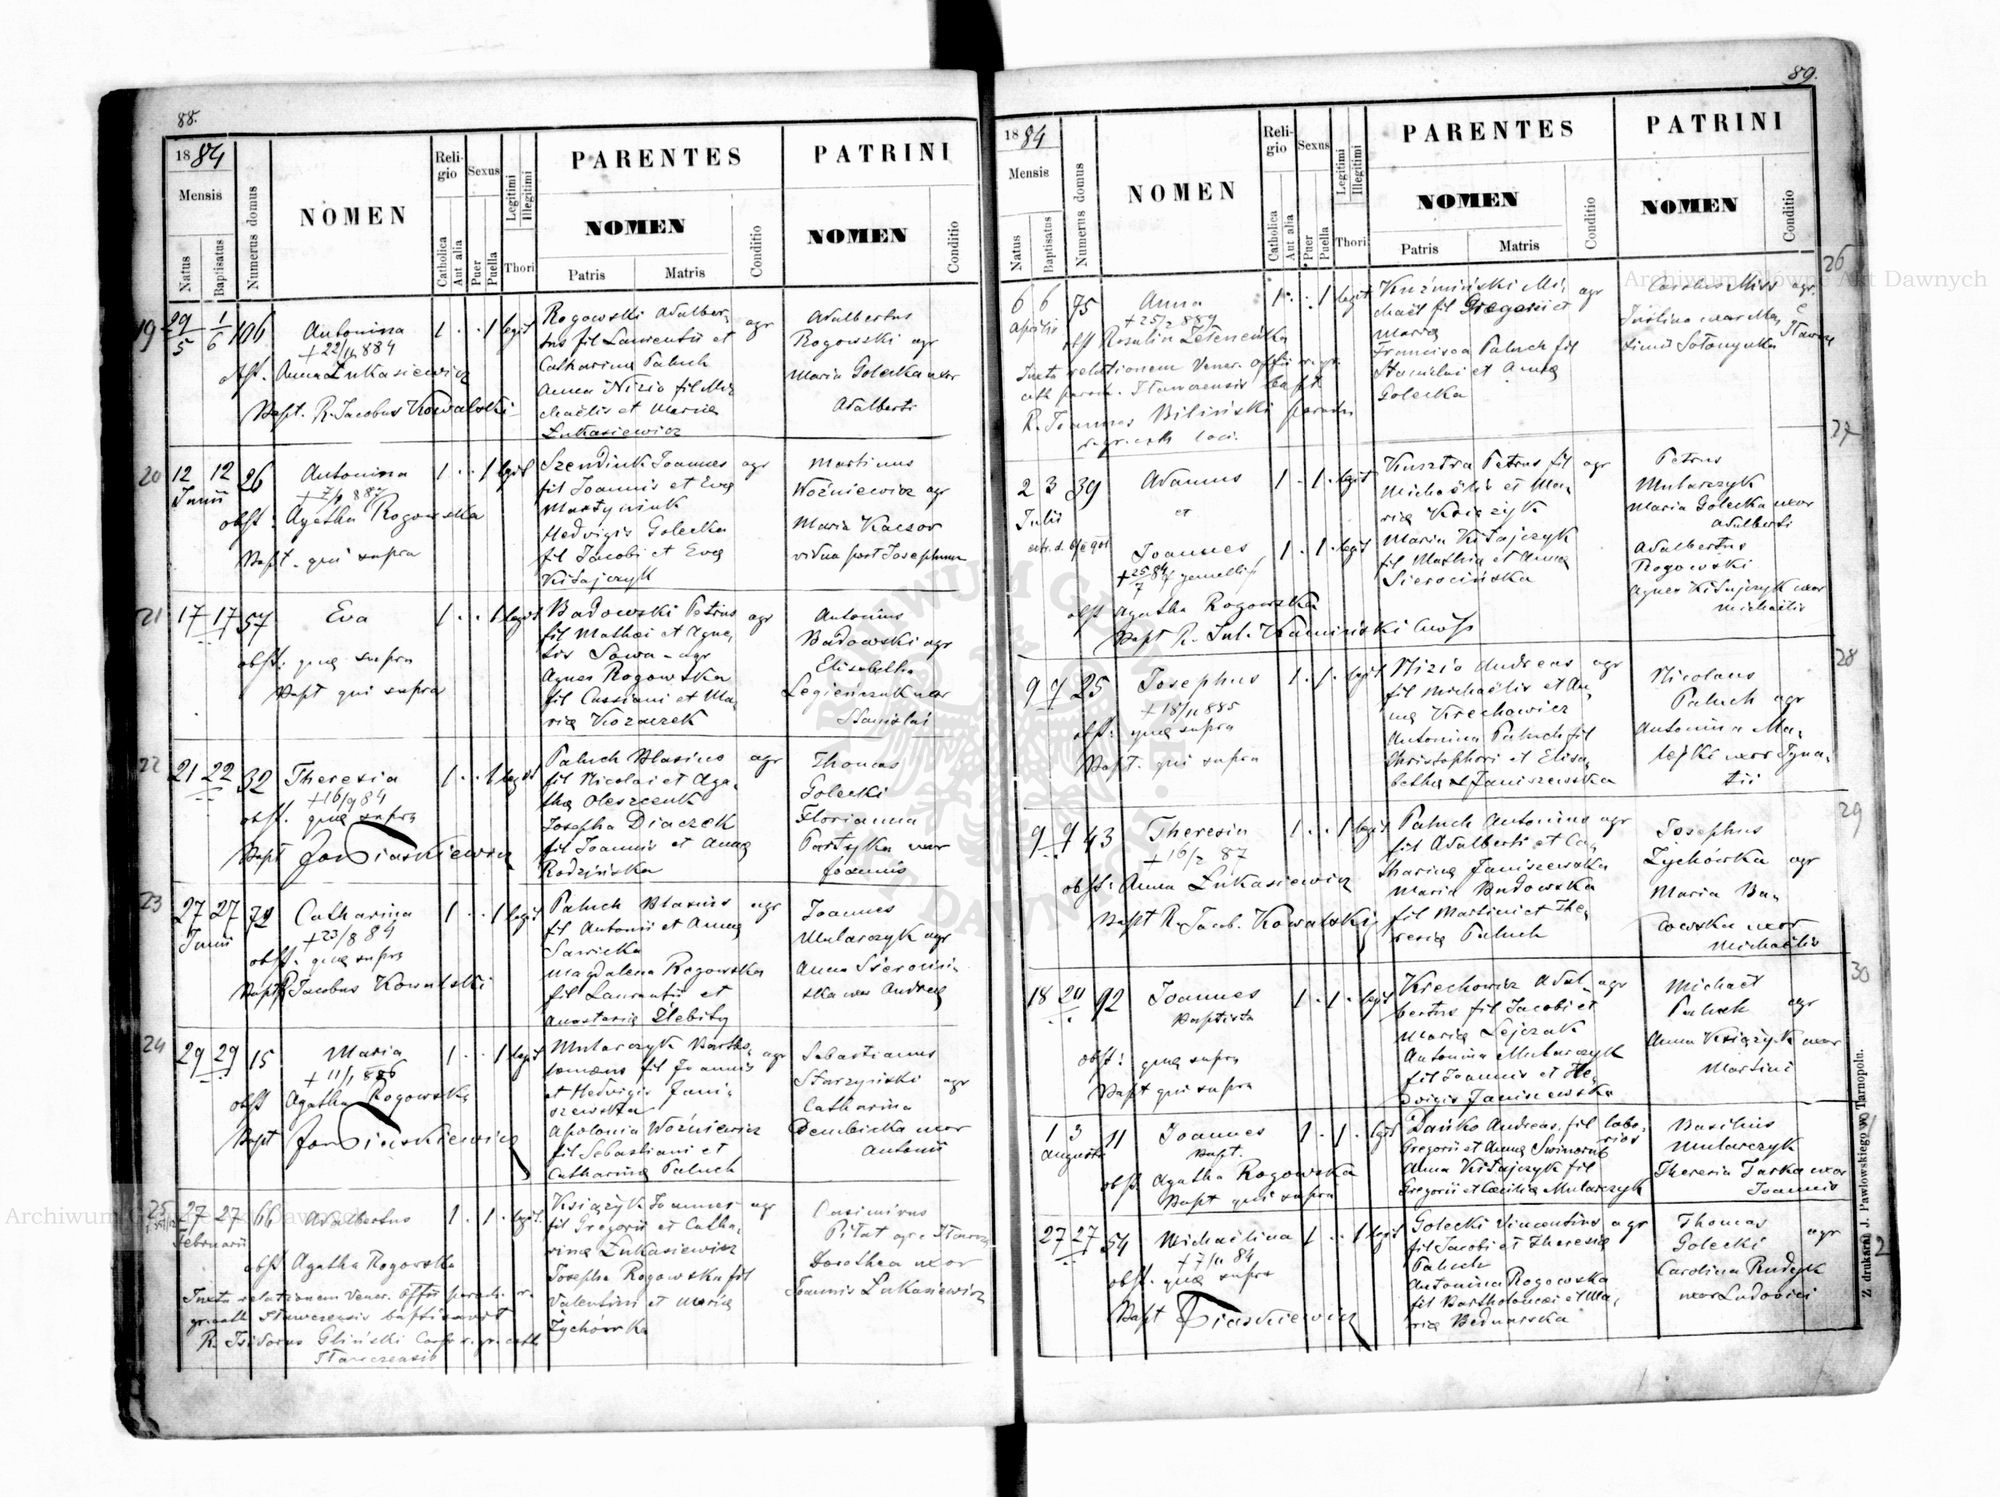 88.
1884
Mensis
Natus
Baptisatus
Numerus domus
NOMEN
Religio
Catholica
Aut alia
Sexus
Puer
Puella
Legitimi
Illegitimi
Thori
PARENTES
NOMEN
Patris
Matris
Conditio
PATRINI
NOMEN
Conditio
19 29/5 1/6 106 Antonina 1 . . 1 legit
+ 22/11 884
obst. Anna Łukasiewicz
Bapt. R. Jacobus Kowalski
Rogowski Adalber- agr
tus fil Laurentii et
Catharina Paluch
Anna Nizio fil Mi
chaelis et Maria
Łukasiewicz
Adalbertus
Rogowski agr
Maria Golecka uxor
Adalberti
20 12 12 26 Antonina 1 . . 1 legit
Junii
obst: Agatha Rogowska
Bapt. qui supra
Szendiuk Joannes agr
fil Joannis et Eva
Martyniuk
Hedvigis Golecka
fil Jacobi et Eva
Kitajczyk
Martinus
Woźniewicz agr
Maria Kaczor
vidua post Josephum
21 17 17 57 Eva 1 . . 1 legit
obst: quę supra
Bapt qui supra
Badowski Petrus agr
fil Mathei et Agne
tis Sowa - agr
Agnes Rogowska
fil Cassiani et Ma
ria Kozaczek
Antonius
Badowski agr
Elisabetha
Legieńczuk uxor
Stanislai
22 21 22 32 Theresia 1 . . 1 legit
+ 16/9 84
obst. quę supra
Bapt Jan Piaskiewicz
Paluch Blasius agr
fil Nicolai et Aga
tha Oleszczuk
Josepha Diaczek
fil Joannis et Anna
Rodzińska
Thomas
Golecki
Florianna
Partyka uxor
Joannis
23 27 27 72 Catharina 1 . . 1 legit
Junii
+ 23/8 84
obst. quę supra
Bapt R Jacobus Kowalski
Paluch Blasius agr
fil Antonii et Anna
Sawicka
Magdalena Rogowska
fil Laurentii et
Anastasia Zlebity
Joannes
Mularczyk agr
Anna Sierociń-
ska uxor Andrea
24 29 29 15 Maria 1 . . 1 legit
+ 11/1 886
obst Agatha Rogowska
Bapt Jan Piaskiewicz
Mularczyk Bartho- agr
lomæus fil Joannis
et Hedvigis Jani-
szewska
Apolonia Woźniewicz
fil Sebastiani et
Catharina Paluch
Sebastianus
Starzyński agr
Catharina
Dembicka uxor
Antonii
25 27 27 66 Adalbertus 1 . 1 . legit
Februarii
obst Agatha Rogowska
Juxta relationem Vener. Offii paroch. r.
gr. cath Iławczensis baptisavit
R. Isidorus Gliński Coop r. gr. cath
Iławczensis
Książyk Joannes agr
fil Gregorii et Catha
rina Łukasiewicz
Josepha Rogowska fil
Valentini et Maria
Zychówka
Casimirus
Dorothea uxor
Joannis Łukasiewicz
89.
1884
Mensis
Natus
Baptisatus
Numerus domus
NOMEN
Religio
Catholica
Aut alia
Sexus
Puer
Puella
Legitimi
Illegitimi
Thori
PARENTES
NOMEN
Patris
Matris
Conditio
PATRINI
NOMEN
Conditio
26
6 6 75 Anna 1 . . 1 legit
Aprilis
+ 25/2 889
obst Rosalia
Juxta relationem Vener. Offii r. gr.
cath paroch. Iławczensis bapt.
R. Joannes Biliński parochus
r. gr. cath loci.
Kuźmiński Mi- agr
chaël fil Gregorii et
Maria
Francisca Paluch fil
Stanislai et Anna
Golecka
Carolus Miss agr.
Justina uxor Ma
27
2 3 39 Adamus 1 . 1 . legit
Julii
et
Joannes 1 . 1 . legit
+ 25/7 84 gemelli
obst Agatha Rogowska
Bapt R. Jul. Kamiński
Kusztra Petrus fil agr
Michaëlis et Ma
ria Książyk
Maria Kitajczyk
fil Mathia et Anna
Sierocińska
Petrus
Mularczyk
Maria Golecka uxor
Adalberti
Adalbertus
Rogowski
Agnes Kitajczyk uxor
Michaëlis
28
9 9 25 Josephus 1 . 1 . legit
+ 18/11 885
obst. quę supra
Bapt. qui supra
Nizio Andreas agr
fil Michaëlis et An
na Krechowicz
Antonina Paluch fil
Christophori et Elisa
betha Janiszewska
Nicolaus
Paluch agr
Antonina Ma-
lejki uxor Igna-
tii
29
9 9 43 Theresia 1 . . 1 legit
+ 16/2 87
obst: Anna Łukasiewicz
Bapt R. Jacob. Kowalski
Paluch Antonius agr
fil Adalberti et Ca
tharina Janiszewska
Maria Badowska
fil Martini et The
resia Paluch
Josephus
Zychówka agr
Maria Ba-
dowska uxor
Michaëlis
30
18 20 92 Joannes 1 . 1 . legit
Baptista
obst: quę supra
Bapt qui supra
Krechowicz Adal- agr
bertus fil Jacobi et
Maria Lejczak
Antonina Mularczyk
fil Joannis et He
dvigis Janiszewska
Michaël
Paluch agr
Anna Książyk uxor
Martini
1 3 11 Joannes 1 . 1 . legit
Augusti
Bapt.
obst. Agatha Rogowska
Bapt qui supra
Dańko Andreas fil labo-
rios
Gregorii et Anna
Anna Kitajczyk fil
Gregorii et Cæcilia Mularczyk
Basilius
Mularczyk
Theresia Tarka uxor
Joannis
27 27 54 Michaëlina 1 . . 1 legit
+ 7/11 84
obst. quę supra
Bapt Piaskiewicz
Golecki Vincentius agr
fil Jacobi et Theresia
Paluch
Antonina Rogowska
fil Bartholomæi et Ma
ria Bednarska
Thomas agr
Golecki
Carolina Rudyk
uxor Ludovici
Z drukarni J. Pawłowskiego w Tarnopolu.
Archiwum Główne Akt Dawnych
Archiwum Główne Akt Dawnych
ARCHIWUM GŁÓWNE AKT DAWNYCH